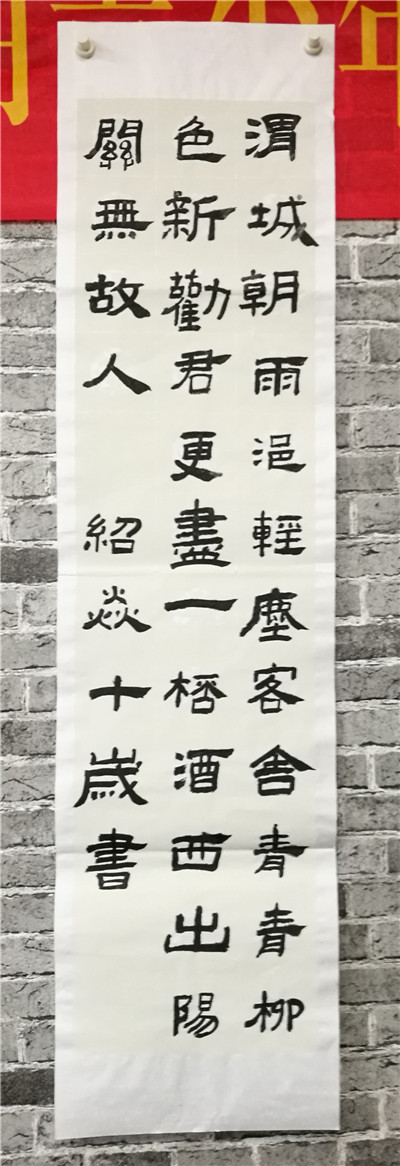 渭城朝雨浥輕塵客舍青青柳
色新勸君更盡一桮酒西出陽
關無故人 紹焱十歲書